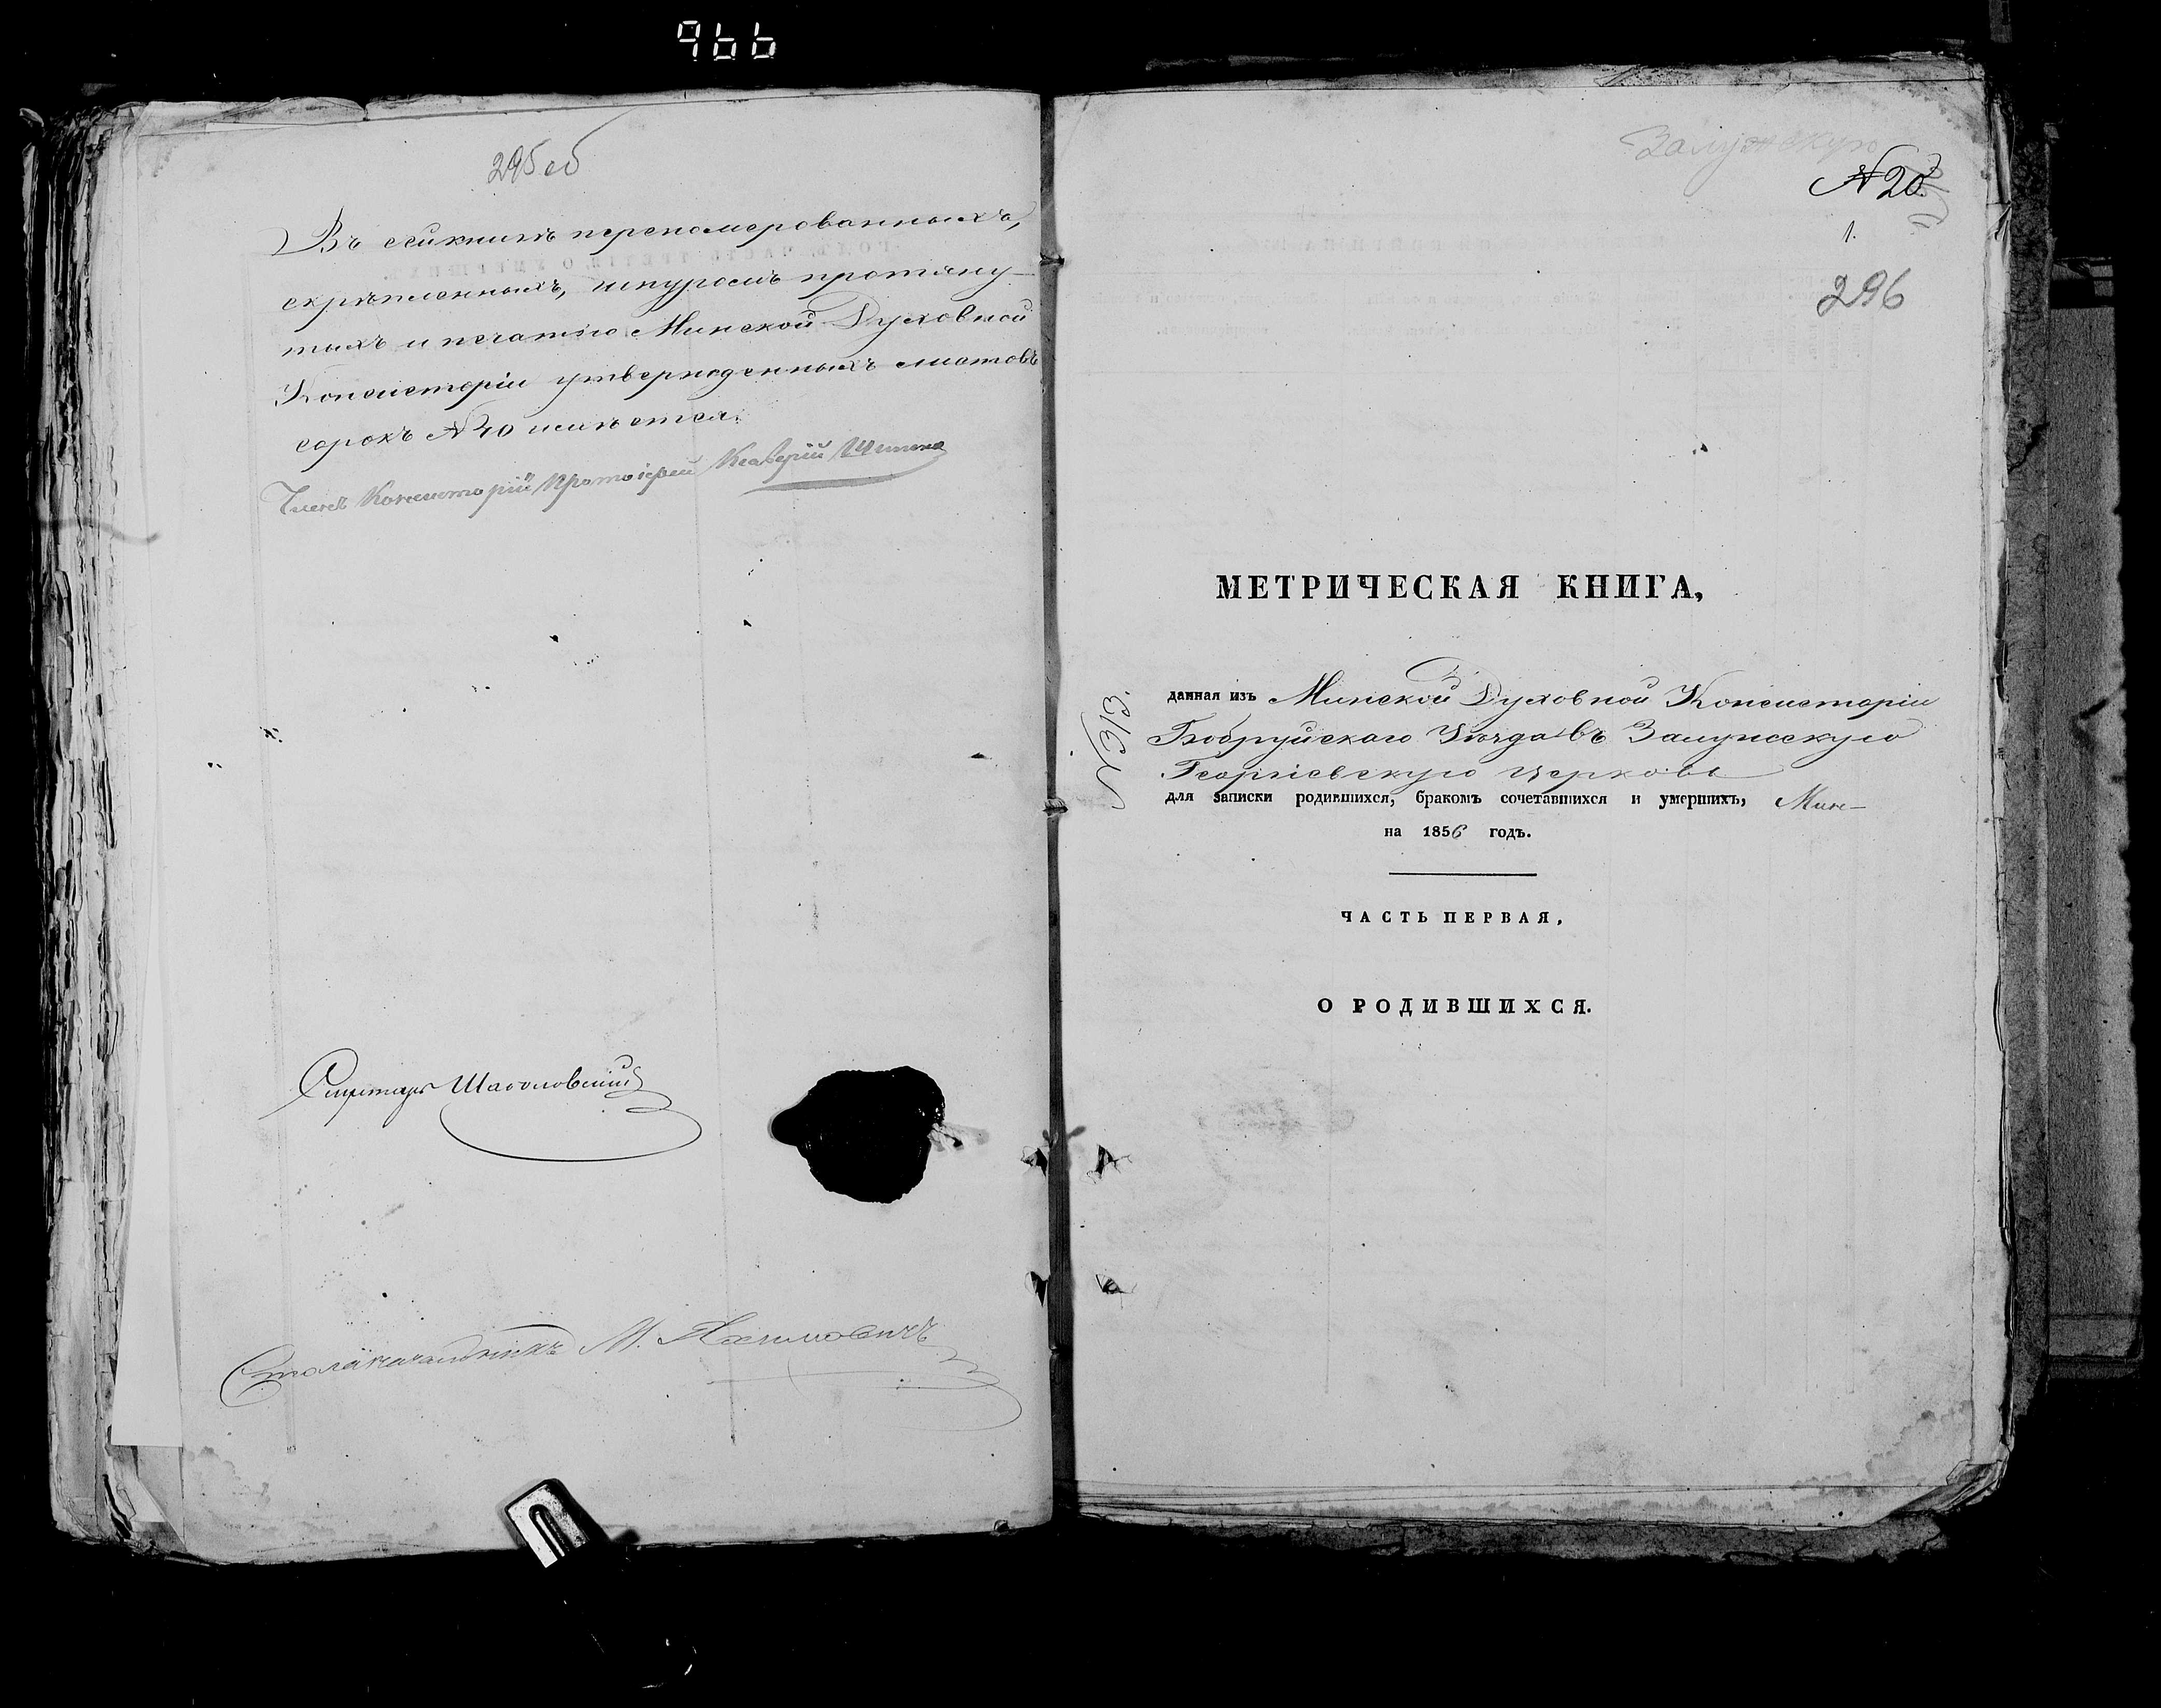 966
295об
Въ сей книгѣ перенумерованныхъ,
скрѣпленныхъ, шнуромъ протяну-
тыхъ и печатію Минской Духовной
Консисторіи утвержденныхъ листовъ
сорокъ №40 имѣется.
Членъ Консисторіи Протоіерей
Секретарь
Столоначальникъ М.
Залужскую
№ 20
1.
296
МЕТРИЧЕСКАЯ КНИГА,
№313.
данная изъ Минской Духовной Консисторіи
Бобруйскаго Уѣзда въ Залужскую
Георгіевскую церковь
для записки родившихся, бракомъ сочетавшихся и умершихъ,
на 1856 годъ.
ЧАСТЬ ПЕРВАЯ,
О РОДИВШИХСЯ.